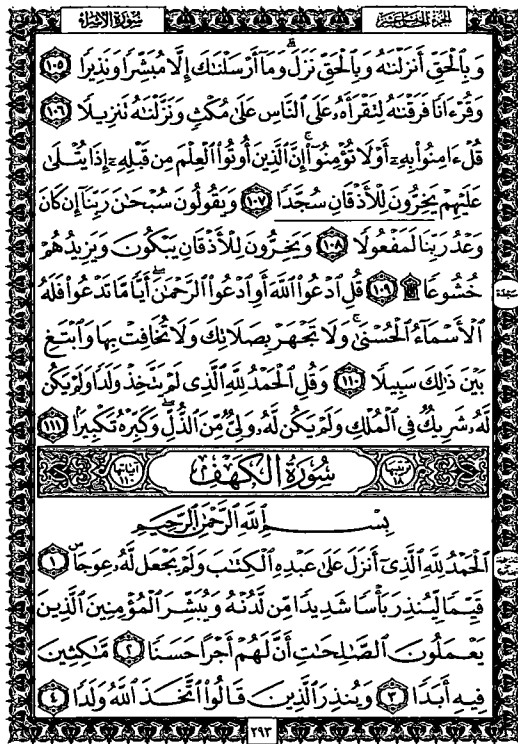 سُورَةُ الإِسْرَاءِ
الجُزءُ الخَامِسَ عَشَر
وَبِٱلْحَقِّ أَنزَلْنَٰهُ وَبِٱلْحَقِّ نَزَلَۗ وَمَآ أَرْسَلْنَٰكَ إِلَّا مُبَشِّرًا وَنَذِيرًا ١٠٥
وَقُرْءَانًا فَرَقْنَٰهُ لِتَقْرَأَهُۥ عَلَى ٱلنَّاسِ عَلَىٰ مُكْثٍ وَنَزَّلْنَٰهُ تَنزِيلًا ١٠٦
قُلْ ءَامِنُوا۟ بِهِۦٓ أَوْ لَا تُؤْمِنُوٓا۟ۚ إِنَّ ٱلَّذِينَ أُوتُوا۟ ٱلْعِلْمَ مِن قَبْلِهِۦٓ إِذَا يُتْلَىٰ
عَلَيْهِمْ يَخِرُّونَ لِلْأَذْقَانِ سُجَّدًا ١٠٧ وَيَقُولُونَ سُبْحَٰنَ رَبِّنَآ إِن كَانَ
وَعْدُ رَبِّنَا لَمَفْعُولًا ١٠٨ وَيَخِرُّونَ لِلْأَذْقَانِ يَبْكُونَ وَيَزِيدُهُمْ
خُشُوعًا ۩ ١٠٩ قُلِ ٱدْعُوا۟ ٱللَّهَ أَوِ ٱدْعُوا۟ ٱلرَّحْمَٰنَۖ أَيًّا مَّا تَدْعُوا۟ فَلَهُ
سَجْدَة
ٱلْأَسْمَآءُ ٱلْحُسْنَىٰۚ وَلَا تَجْهَرْ بِصَلَاتِكَ وَلَا تُخَافِتْ بِهَا وَٱبْتَغِ
بَيْنَ ذَٰلِكَ سَبِيلًا ١١٠ وَقُلِ ٱلْحَمْدُ لِلَّهِ ٱلَّذِى لَمْ يَتَّخِذْ وَلَدًا وَلَمْ يَكُن
لَّهُۥ شَرِيكٌ فِى ٱلْمُلْكِ وَلَمْ يَكُن لَّهُۥ وَلِىٌّ مِّنَ ٱلذُّلِّۖ وَكَبِّرْهُ تَكْبِيرًۢا ١١١
ترتيبها ١٨ سُورَةُ الكَهْفِ آياتها ١١٠
بِسْمِ ٱللَّهِ ٱلرَّحْمَٰنِ ٱلرَّحِيمِ
ٱلْحَمْدُ لِلَّهِ ٱلَّذِىٓ أَنزَلَ عَلَىٰ عَبْدِهِ ٱلْكِتَٰبَ وَلَمْ يَجْعَل لَّهُۥ عِوَجَاۜ ١
قَيِّمًا لِّيُنذِرَ بَأْسًا شَدِيدًا مِّن لَّدُنْهُ وَيُبَشِّرَ ٱلْمُؤْمِنِينَ ٱلَّذِينَ
يَعْمَلُونَ ٱلصَّٰلِحَٰتِ أَنَّ لَهُمْ أَجْرًا حَسَنًا ٢ مَّٰكِثِينَ
فِيهِ أَبَدًا ٣ وَيُنذِرَ ٱلَّذِينَ قَالُوا۟ ٱتَّخَذَ ٱللَّهُ وَلَدًا ٤
٢٩٣